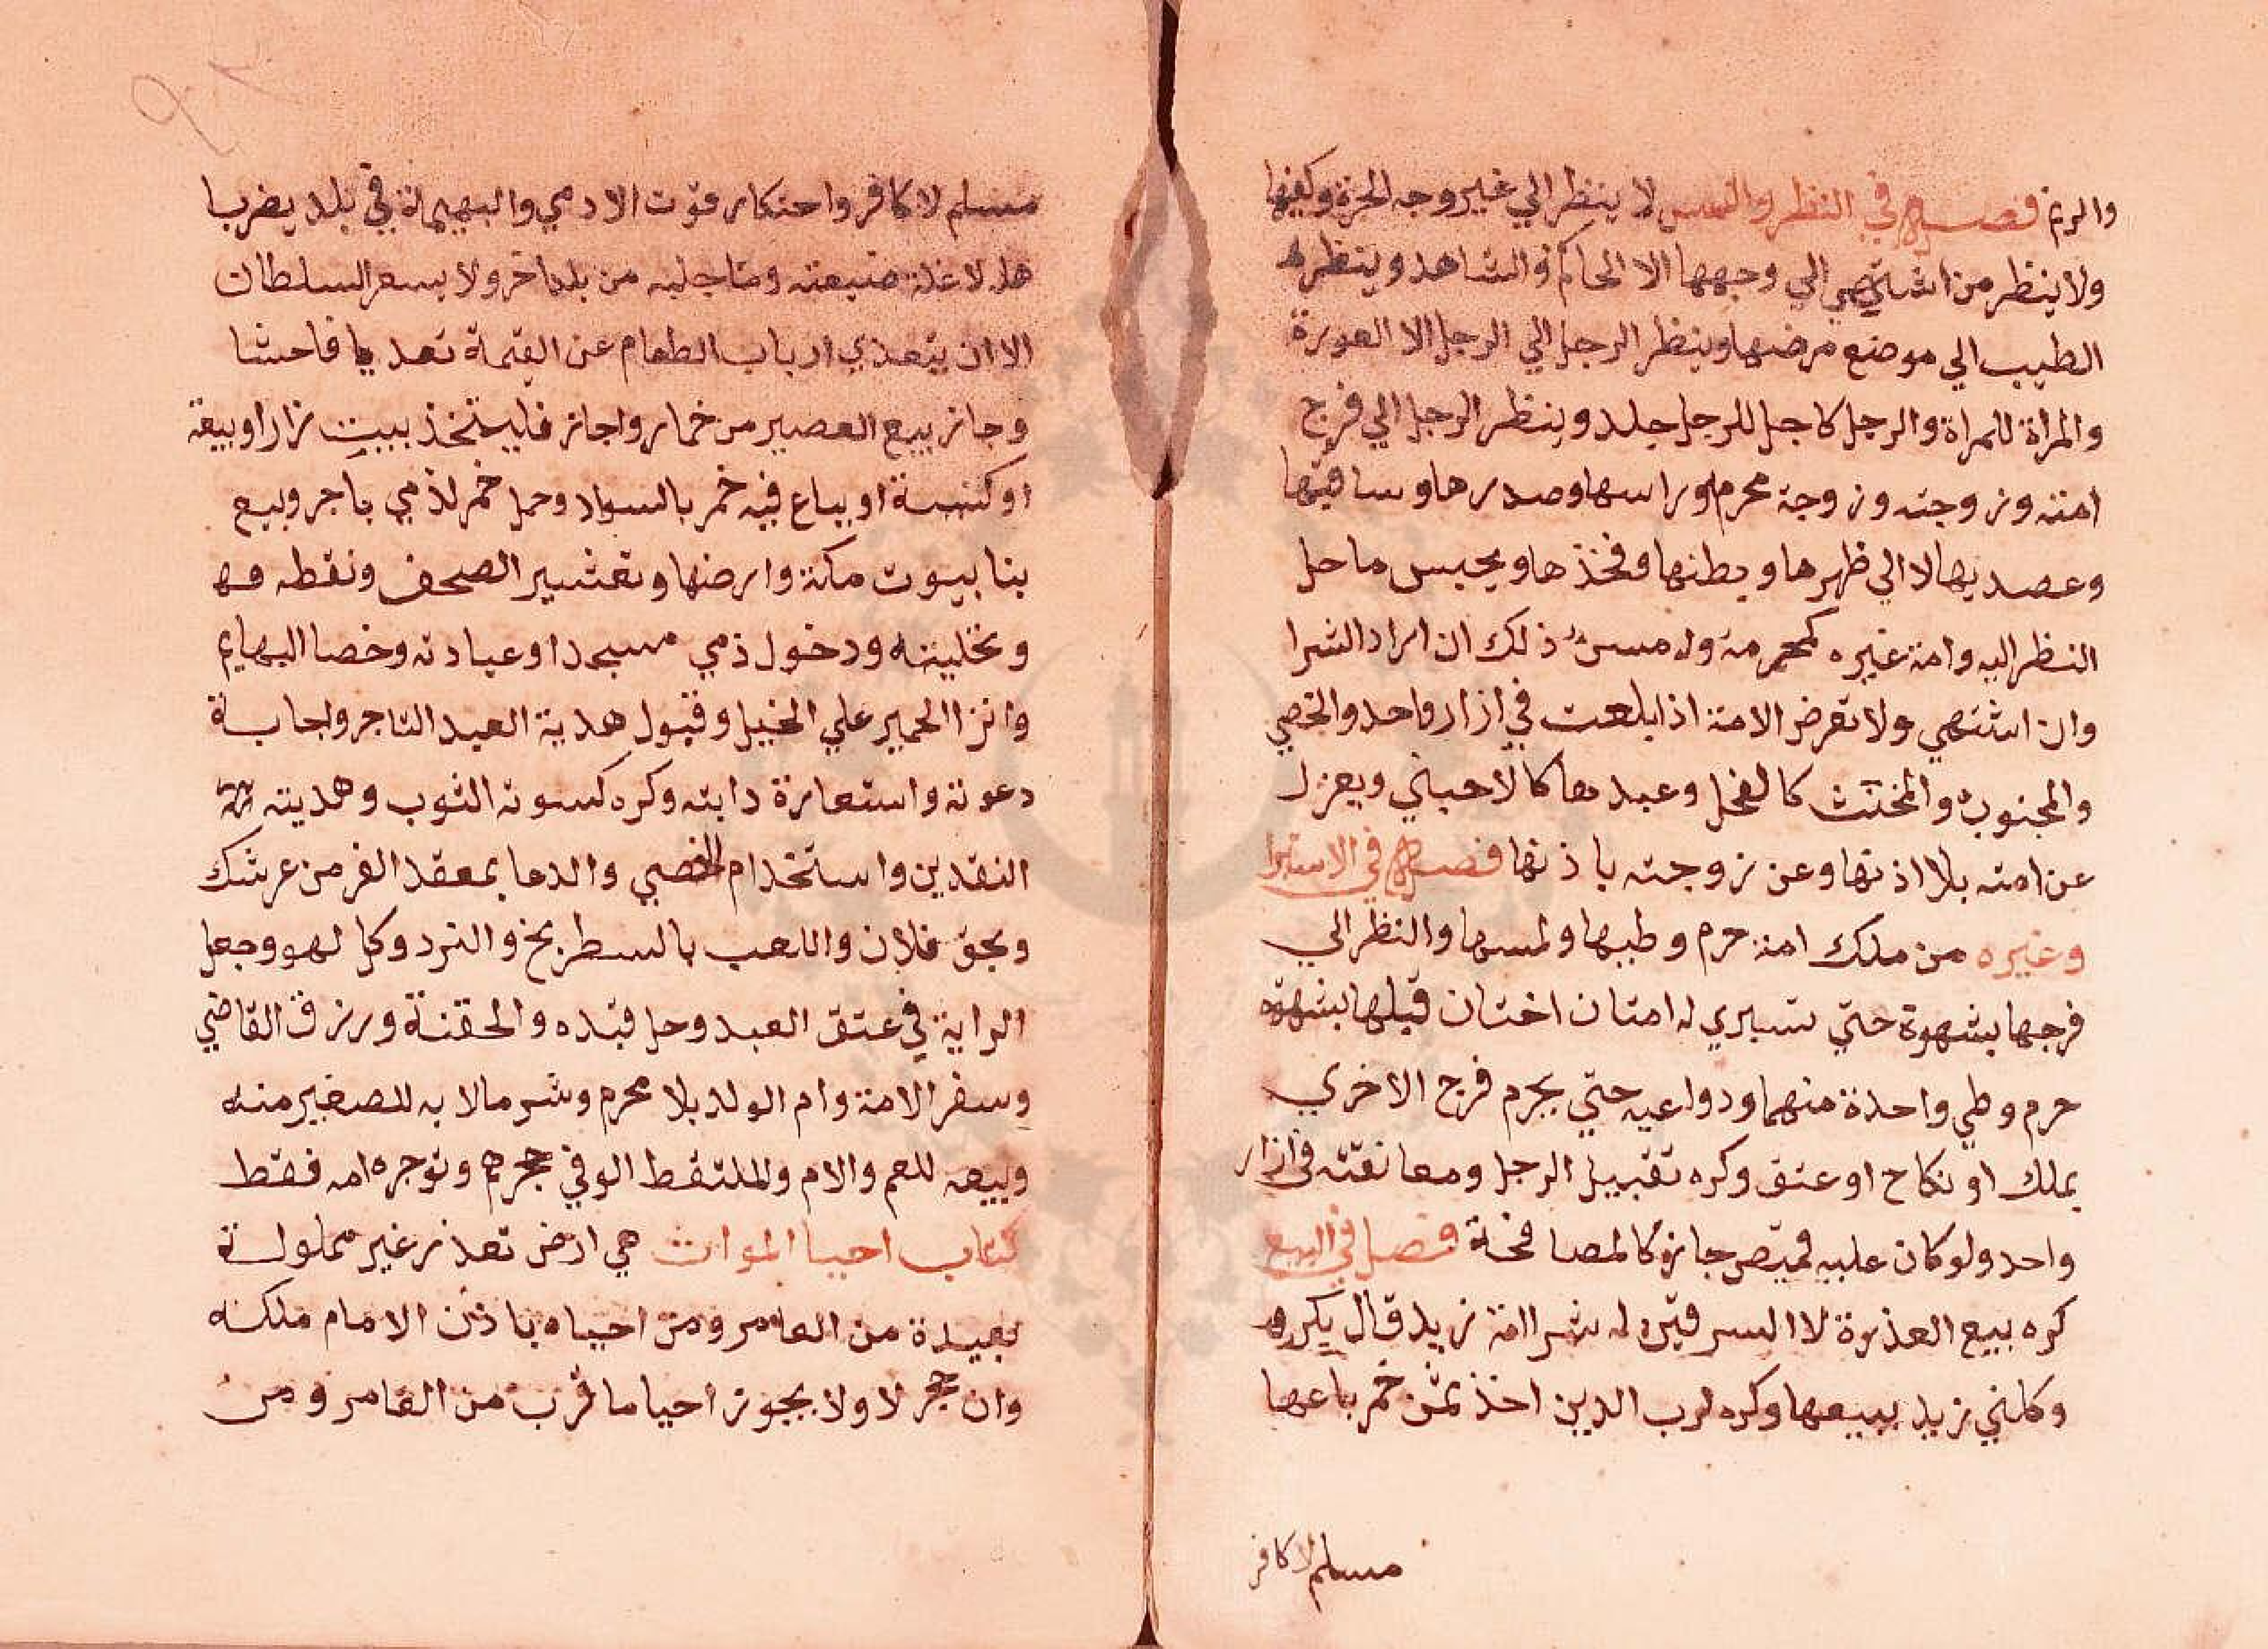 والرتم فصل في النظر والمس لا ينظر الي غير وجه الحرة وكفيها
ولا ينظر من اشتهي الي وجهها الا الحاكم والشاهد وينظر
الطبيب الي موضع مرضها وينظر الرجل الي الرجل الا العورة
والمراة للمراة والرجل كالرجل للرجل وينظر الرجل الي فرج
امته وزوجته ووجه محرمه وراسها وصدرها وساقيها
وعضديها لا الي ظهرها وبطنها وفخذها ويحبس ما حل
النظر اليه وامة غيره كمحرمه وله مس ذلك ان اراد الشرا
وان اشتهي ولا تعرض الامة اذا بلغت في ازار واحد والخصي
والمجنوب والمخنث كالفحل وعبدها كالاجنبي ويعزل
عن امته بلا اذنها وعن زوجته باذنها فصل في الاستبرا
وغيره من ملك امة حرم وطيها ولمسها والنظر الي
فرجها بشهوة حتي تستبري له امتان اختان قبلها بشهوة
حرم وطي واحدة منهما ودواعيه حتي يحرم فرج الاخري
بملك او نكاح او عتق وكره تقبيل الرجل ومعانقته في ازار
واحد ولو كان عليه قميص جاز كالمصافحة فصل في البيع
كره بيع العذرة لا السرقين له شرا امة زيد قال بكر
وكلني زيد ببيعها وكره لرب الدين اخذ ثمن خمر باعها
مسلم لا كافر
مسلم لا كافر واحتكار قوت الادمي والبهيمة في بلد يضر با
هله لا غلة ضيعته وما جلبه من بلد اخر ولا يسعر السلطان
الا ان يتعدي ارباب الطعام عن القيمة تعديا فاحشا
وجاز بيع العصير من خمار واجازة بيت ليتخذ بيت نار او بيعة
او كنيسة او يباع فيه خمر بالسواد وحمل خمر لذمي باجر وبيع
بنا بيوت مكة وارضها وتعشير المصحف ونقطه
وتحليته ودخول ذمي مسجدا وعيادته وخصا البهايم
وانزا الحمير علي الخيل وقبول هدية العبد التاجر واجابة
دعوته واستعارة دابته وكره كسوته الثوب وهديته
النقدين واستخدام الخصي والدعا بمعقد العز من عرشك
وبحق فلان واللعب بالشطرنج والنرد وكل لهو وجعل
الراية في عتق العبد وحل قيده والحقنة ورزق القاضي
وسفر الامة وام الولد بلا محرم وشر مالا به للصغير منه
وبيعه للعم والام والملتقط لو في حجرهم وتوجره امه فقط
كتاب احيا الموات هي ارض تعذر غير مملوكة
بعيدة من العامر ومن احياه باذن الامام ملكه
وان حجر لا ولا يجوز احيا ما قرب من العامر ومن